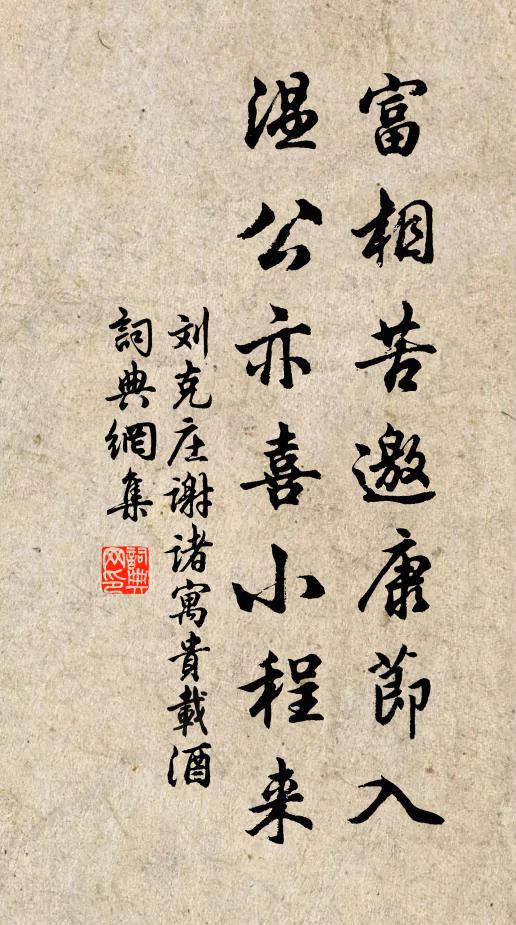 富相苦邀康節入
温公亦喜小程来
刘克庄谢诸寓貴載酒
詞典網集
詞典网印